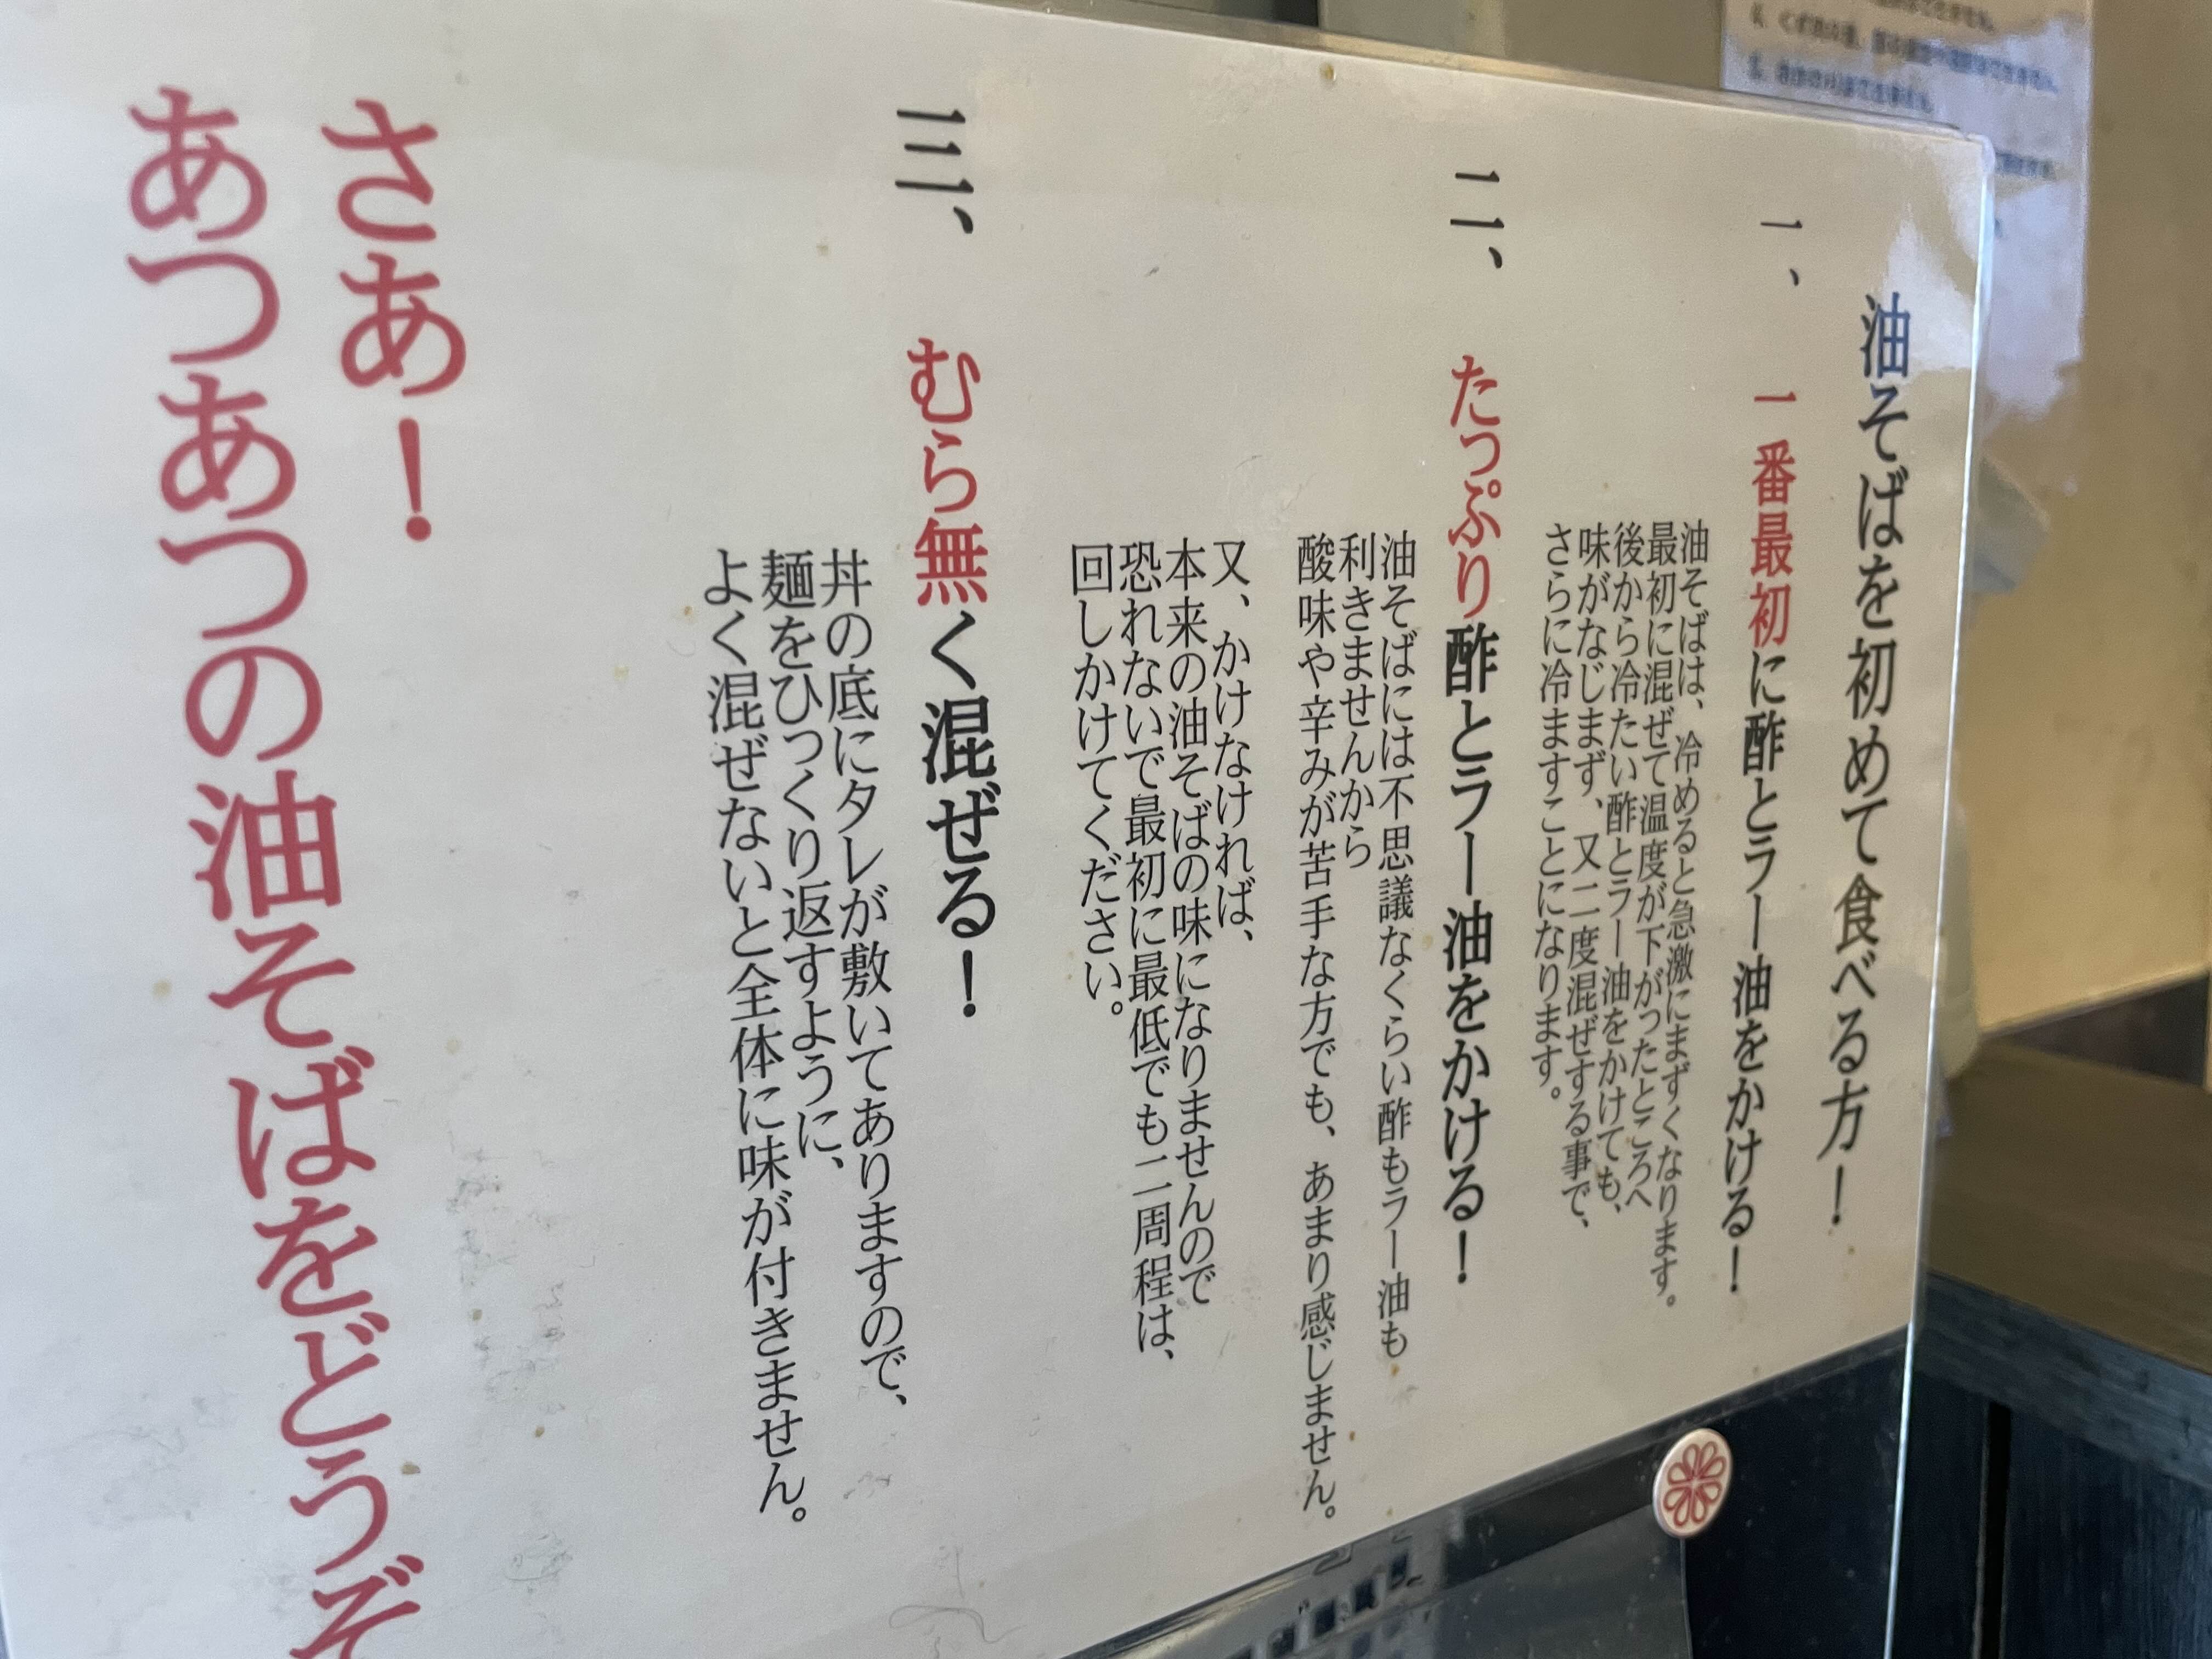 油そばを初めて食べる方！
一、 一番最初に酢とラー油をかける！
油そばは、冷めると急激にまずくなります。
最初に混ぜて温度が下がったところへ
後から冷たい酢とラー油をかけても、
味がなじまず、又二度混ぜする事で、
さらに冷ますことになります。
二、 たっぷり酢とラー油をかける！
油そばには不思議なくらい酢もラー油も
利きませんから
酸味や辛みが苦手な方でも、あまり感じません。
又、かけなければ、
本来の油そばの味になりませんので
恐れないで最初に最低でも二周程は、
回しかけてください。
三、 むら無く混ぜる！
丼の底にタレが敷いてありますので、
麺をひっくり返すように、
よく混ぜないと全体に味が付きません。
さあ！
あつあつの油そばをどうぞ